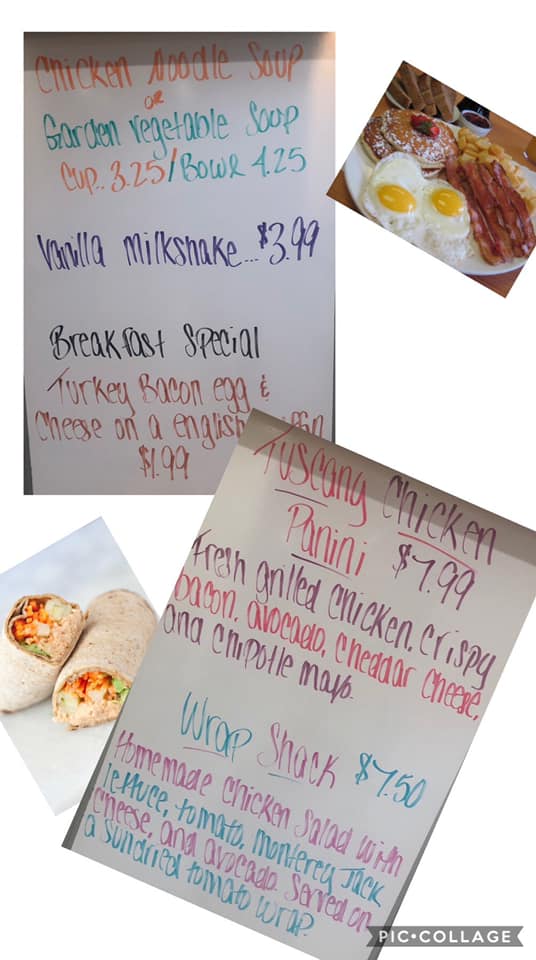 Chicken Noodle Soup
or
Garden Vegetable Soup
Cup.. 3.25/Bowl 4.25
Vanilla Milkshake...$3.99
Breakfast Special
Turkey Bacon egg &
Cheese on a english
$1.99
Tuscany Chicken
Panini $7.99
Fresh grilled chicken, crispy
bacon, avocado, cheddar cheese,
and chipotle mayo.
Wrap Shack $7.50
Homemade chicken salad with
lettuce, tomato, monterey Jack
cheese, and avocado. Served on
a sundried tomato wrap.
PIC•COLLAGE